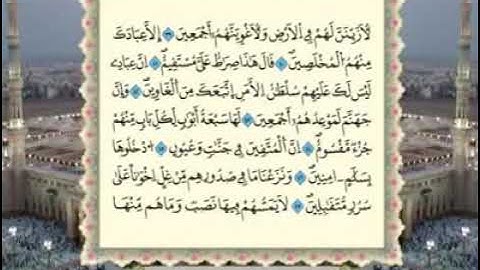 لَأُزَيِّنَنَّ لَهُمْ فِي الْأَرْضِ وَلَأُغْوِيَنَّهُمْ أَجْمَعِينَ ۝ إِلَّا عِبَادَكَ
مِنْهُمُ الْمُخْلَصِينَ ۝ قَالَ هَذَا صِرَاطٌ عَلَيَّ مُسْتَقِيمٌ ۝ إِنَّ عِبَادِي
لَيْسَ لَكَ عَلَيْهِمْ سُلْطَانٌ إِلَّا مَنِ اتَّبَعَكَ مِنَ الْغَاوِينَ ۝ وَإِنَّ
جَهَنَّمَ لَمَوْعِدُهُمْ أَجْمَعِينَ ۝ لَهَا سَبْعَةُ أَبْوَابٍ لِكُلِّ بَابٍ مِنْهُمْ
جُزْءٌ مَقْسُومٌ ۝ إِنَّ الْمُتَّقِينَ فِي جَنَّاتٍ وَعُيُونٍ ۝ ادْخُلُوهَا
بِسَلَامٍ آمِنِينَ ۝ وَنَزَعْنَا مَا فِي صُدُورِهِمْ مِنْ غِلٍّ إِخْوَانًا عَلَى
سُرُرٍ مُتَقَابِلِينَ ۝ لَا يَمَسُّهُمْ فِيهَا نَصَبٌ وَمَا هُمْ مِنْهَا